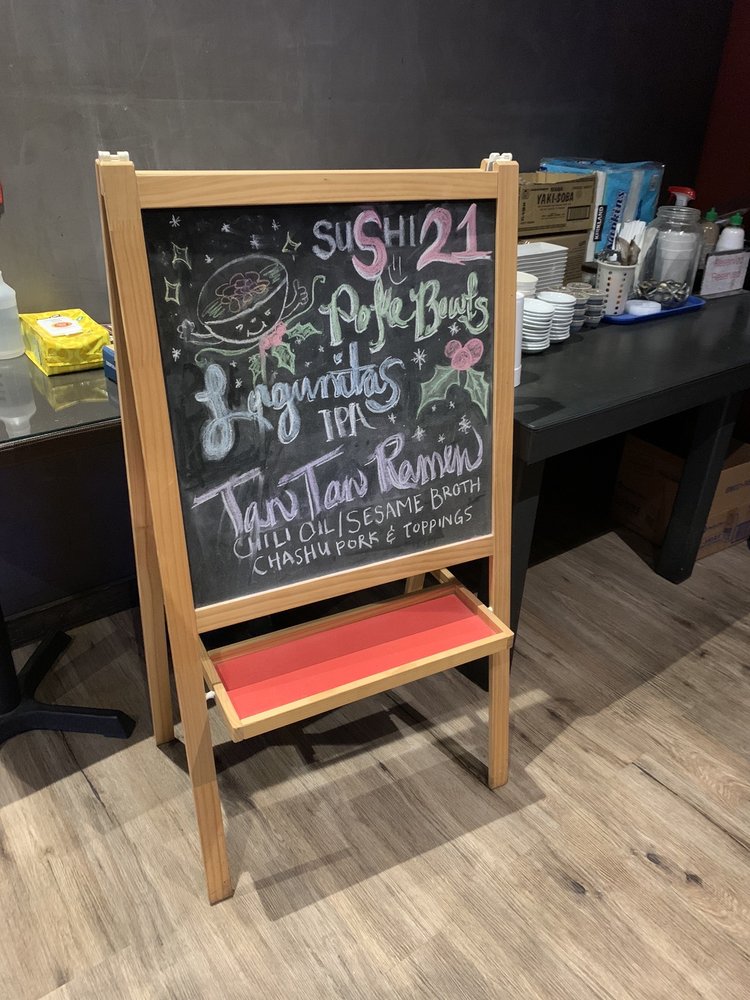 SUSHI 21
Poke Bowls
Lagunitas
IPA
Tan Tan Ramen
CHILI OIL/SESAME BROTH
CHASHU PORK & TOPPINGS
YAKI-SOBA
KIRKLAND